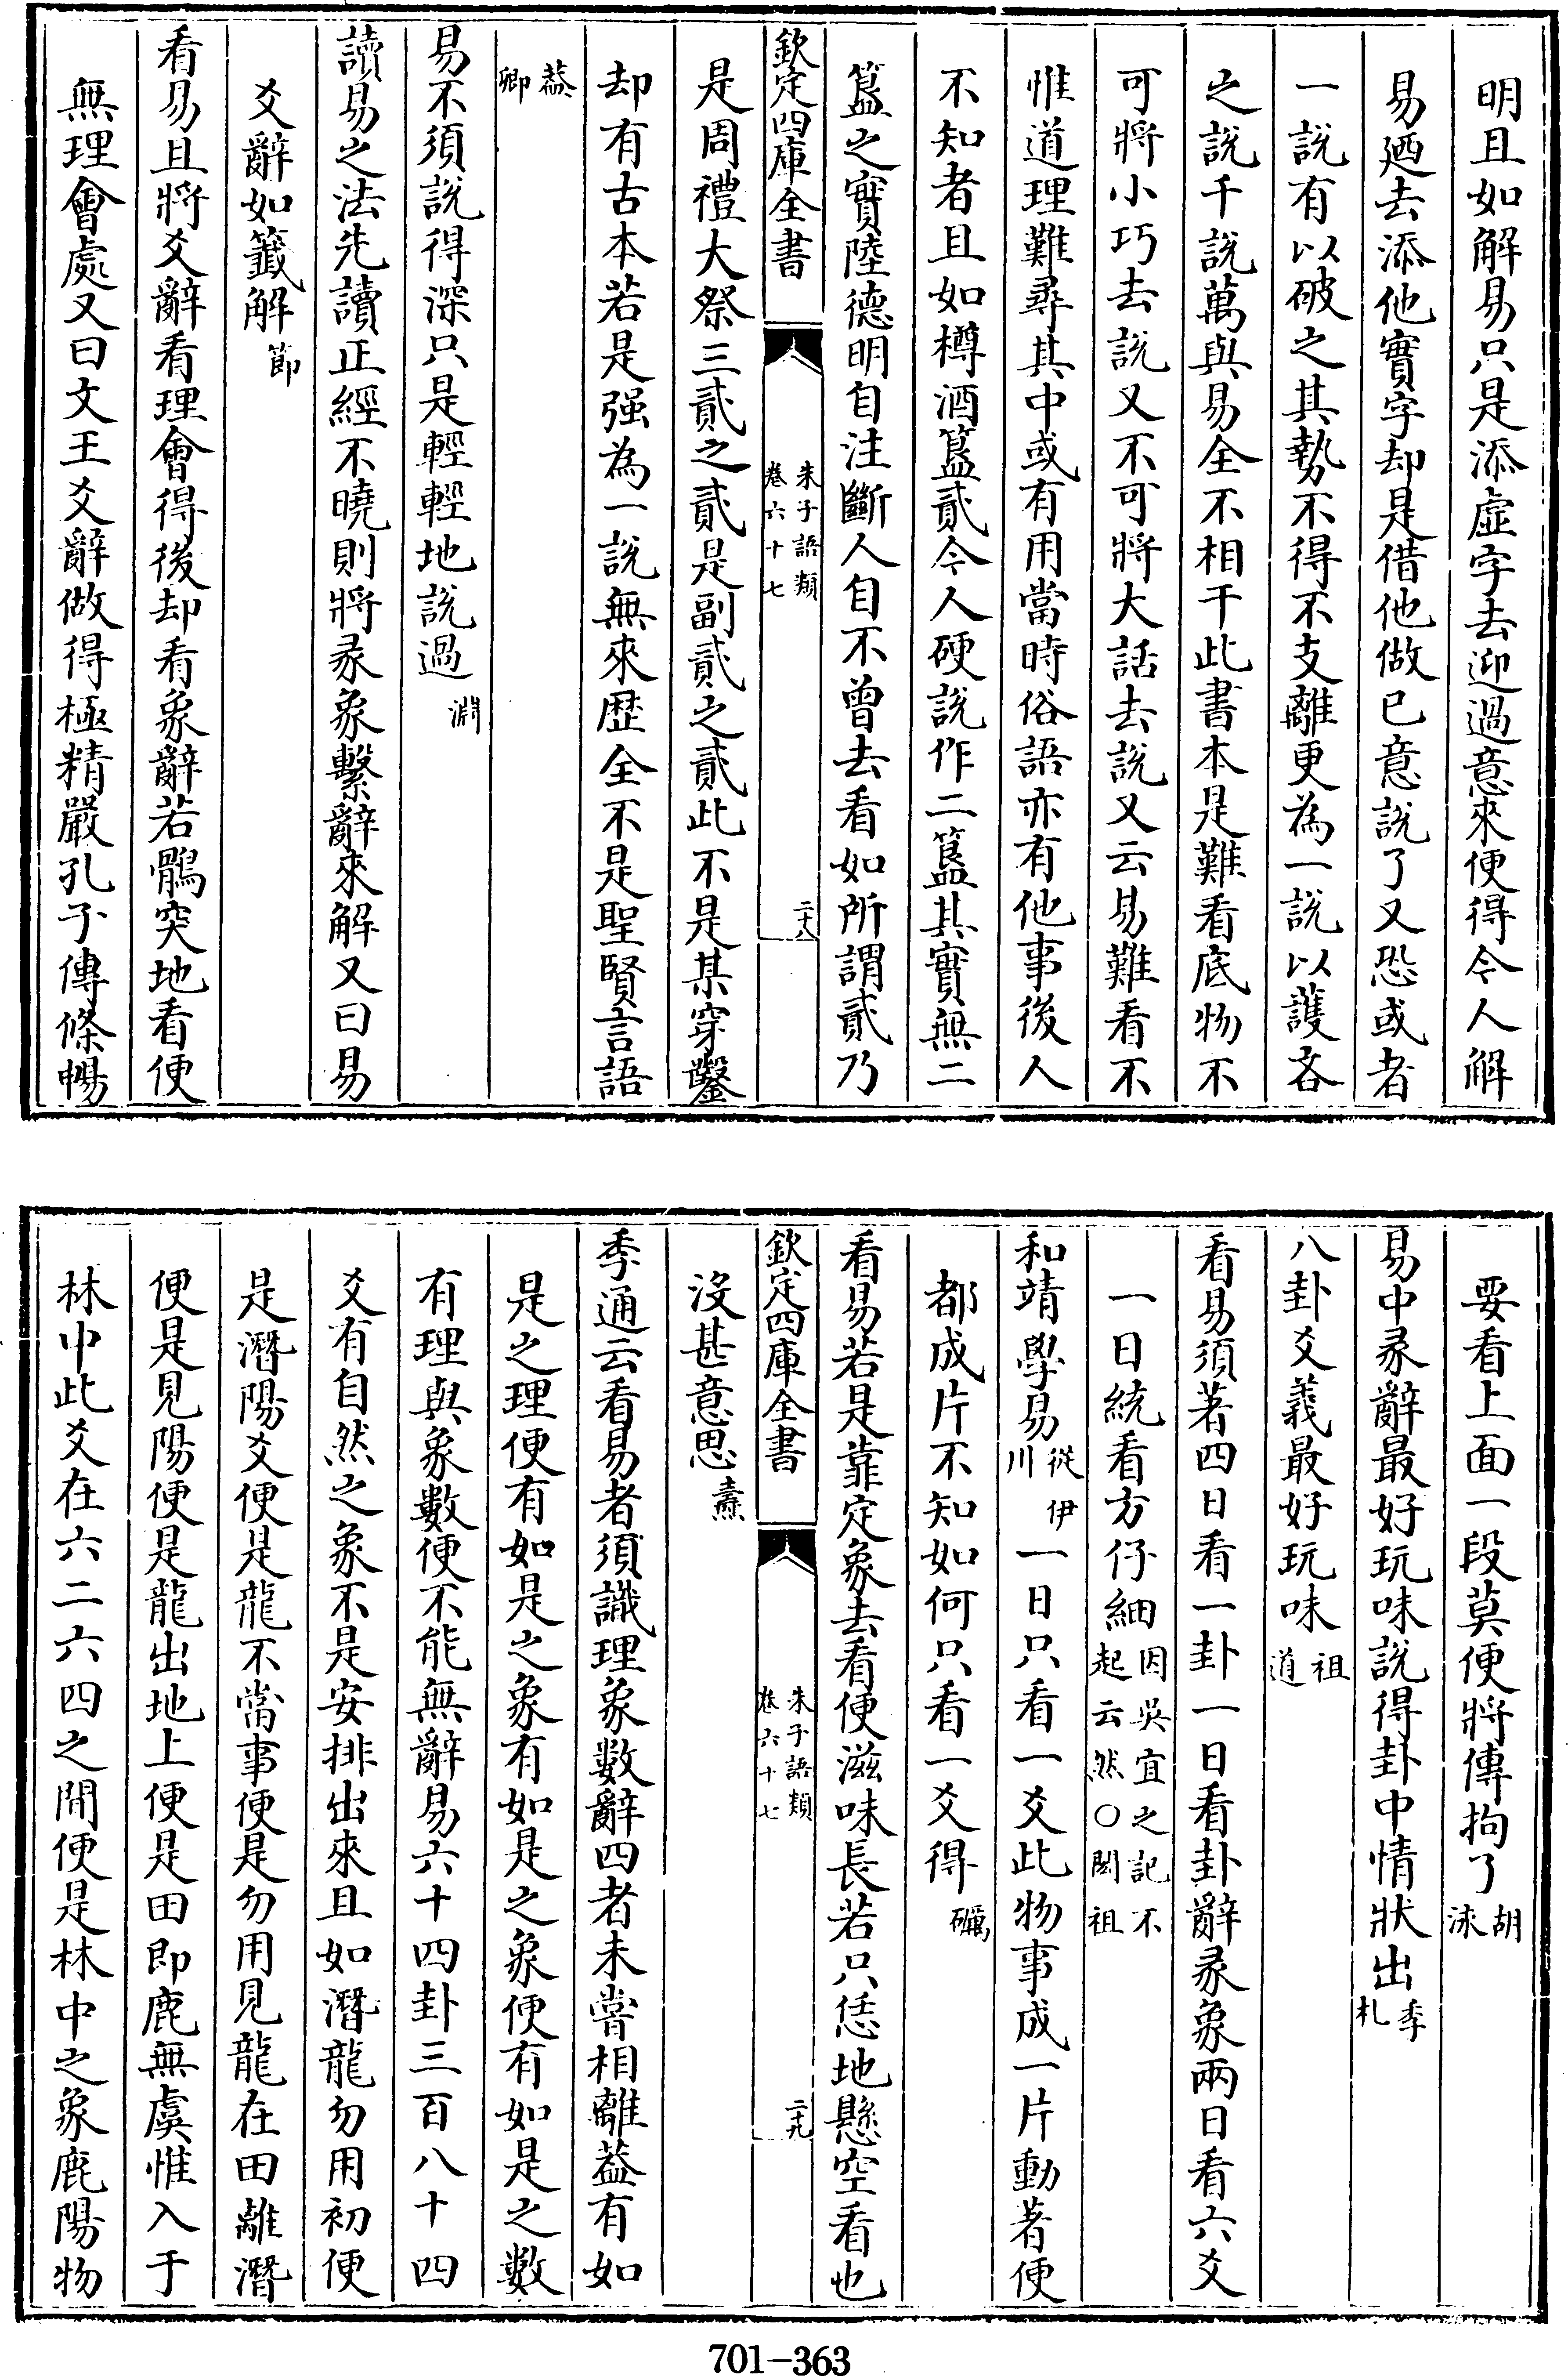 明且如解易只是添虛字去迎過意來便得令人解
易廼去添他實字却是借他做已意說了又恐或者
一說有以破之其勢不得不支離更為一說以護吝
之說千說萬與易全不相干此書本是難看底物不
可將小巧去說又不可將大話去說又云易難看不
惟道理難尋其中或有用當時俗語亦有他事後人
不知者且如樽酒簋貳今人硬說作二簋其實無二
簋之實陸德明自注斷人自不曾去看如所謂貳乃
欽定四庫全書 朱子語類 卷六十七 二十八
是周禮大祭三貳之貳是副貳之貳此不是某穿鑿
却有古本若是强為一說無來歷全不是聖賢言語
葢卿
易不須說得深只是輕輕地說過 淵
讀易之法先讀正經不曉則將彖象繫辭來解又曰易
爻辭如籤解 節
看易且將爻辭看理會得後却看象辭若鶻突地看便
無理會處又曰文王爻辭做得極精嚴孔子傳條暢
要看上面一段莫便將傳拘了 胡泳
易中彖辭最好玩味說得卦中情狀出 季札
八卦爻義最好玩味 祖道
看易須著四日看一卦一日看卦辭彖象兩日看六爻
一日統看方仔細 因吳宜之記不起云然○閎祖
和靖學易 從伊川 一日只看一爻此物事成一片動著便
都成片不知如何只看一爻得 礪
看易若是靠定象去看便滋味長若只恁地懸空看也
欽定四庫全書 朱子語類 卷六十七 二十九
没甚意思 燾
季通云看易者須識理象數辭四者未嘗相離葢有如
是之理便有如是之象有如是之象便有如是之數
有理與象數便不能無辭易六十四卦三百八十四
爻有自然之象不是安排出來且如潛龍勿用初便
是潛陽爻便是龍不當事便是勿用見龍在田離潛
便是見陽便是龍出地上便是田即鹿無虞惟入于
林中此爻在六二六四之間便是林中之象鹿陽物
701-363